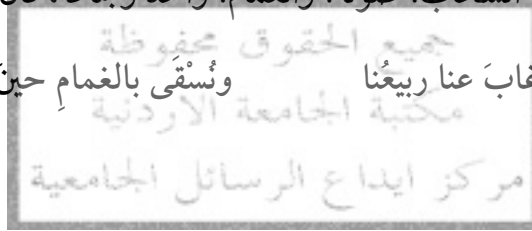 السحاب، والغمام، واحد
جميع الحقوق محفوظة
غابَ عنا ربيعُنا ونُسْقَى بالغمامِ
مكتبة الجامعة الاردنية
مركز ايداع الرسائل الجامعية